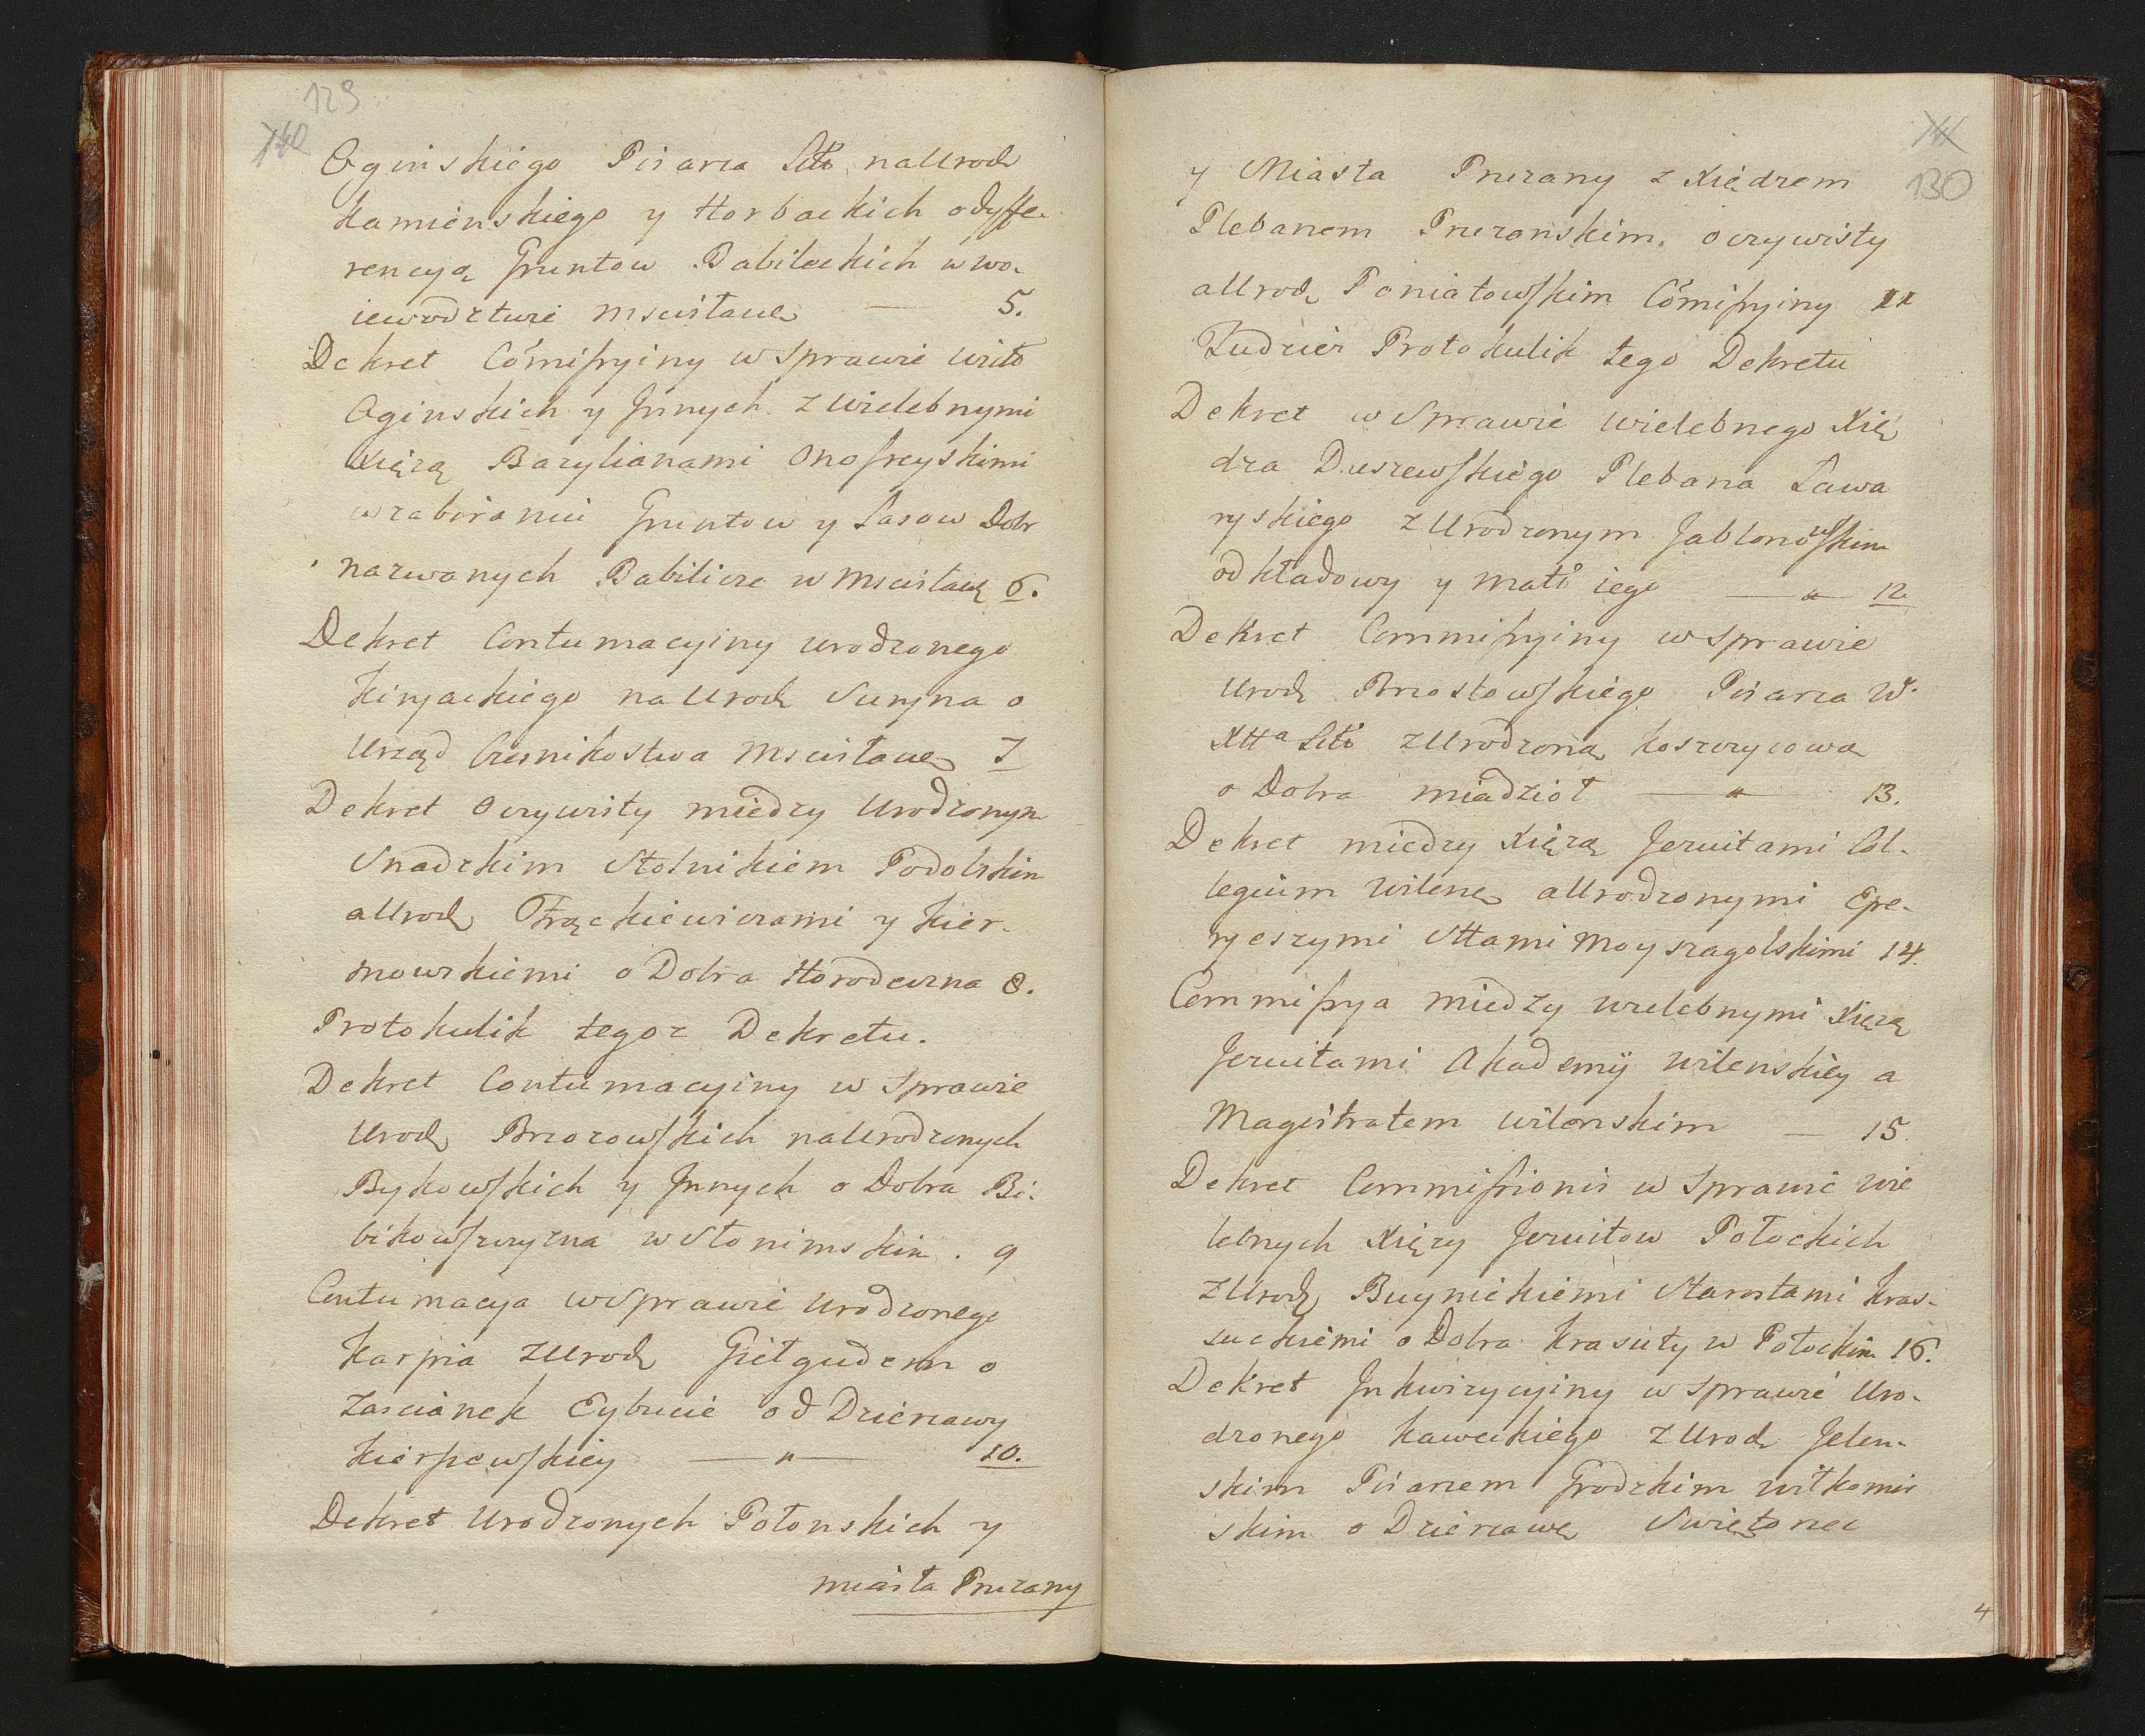 129
140
Oginskiego Pisarza Litt na Urodz
Kamienskiego y Horbackich o dyffe-
rencyą Gruntow Babileckich w wo-
iewodztwie Mscisław 5.
Dekret Comissyiny w Sprawie Witt
Oginskich y Jnnych z Wielebnymi
Xięzą Bazylianami Onofreyskimi
w zabiraniu Gruntow y Lasow Dobr
nazwanych Babilicze w Mscisław 6.
Dekret Contumacyiny urodzonego
Kiryackiego na Urodz Suryna o
Urząd Czesnikostwa Mscisław 7
Dekret Oczywisty miedzy Urodzonym
Snadzkim Stolnikiem Podolskim
a Urodz Frąckiewiczami y Kier-
nowskiemi o Dobra Horodeczna 8.
Protokulik tegoz Dekretu.
Dekret Contumacyiny w Sprawie
Urodz Brzozowskich na Urodzonych
Bykowskich y Jnnych o Dobra Bi-
bikowszczyzna w Słonimskim . 9
Contumacya w Sprawie Urodzonego
Karpia z Urodz Giełgudem o
Zascianek Eybucie od Dzierzawy
Kierpowskiey — " — 10.
Dekret Urodzonych Połonskich y
miasta Pruzany
130
y Miasta Pruzany z Xiędzem
Plebanem Pruzanskim. oczywisty
a Urodz Poniatowskim Comissyiny 11
Tudziez Protokulik tego Dekretu
Dekret w Sprawie Wielebnego Xię
dza Duszewskiego Plebana Ława
ryskiego z Urodzonym Jabłonowskim
odkładowy y matt iego — " — 12.
Dekret Commissyiny w Sprawie
Urodz Brzostowskiego Pisarza W.
Xtta Litt z Urodzoną Koszczycową
o Dobra Miadzioł — " — 13.
Dekret miedzy Xięzą Jezuitami Col-
legium Wilen a Urodzonymi Epe-
ryeszymi Sttami Moyszagolskimi 14.
Commissya miedzy Wielebnymi Xięzą
Jezuitami Akademij Wilenskiey a
Magistratem Wilenskim — 15.
Dekret Commissionis w Sprawie Wie
lebnych Xięzy Jezuitow Połockich
z Urodz Buynickiemi Starostami Kras-
suckiemi o Dobra Krasuty w Połockim 16.
Dekret Jnkwizycyiny w Sprawie Uro-
dzonego Kaweckiego z Urodz Jelen-
skim Pisarzem Grodzkim Wiłkomir
skim o Dzierzawę Swiętoniec
4